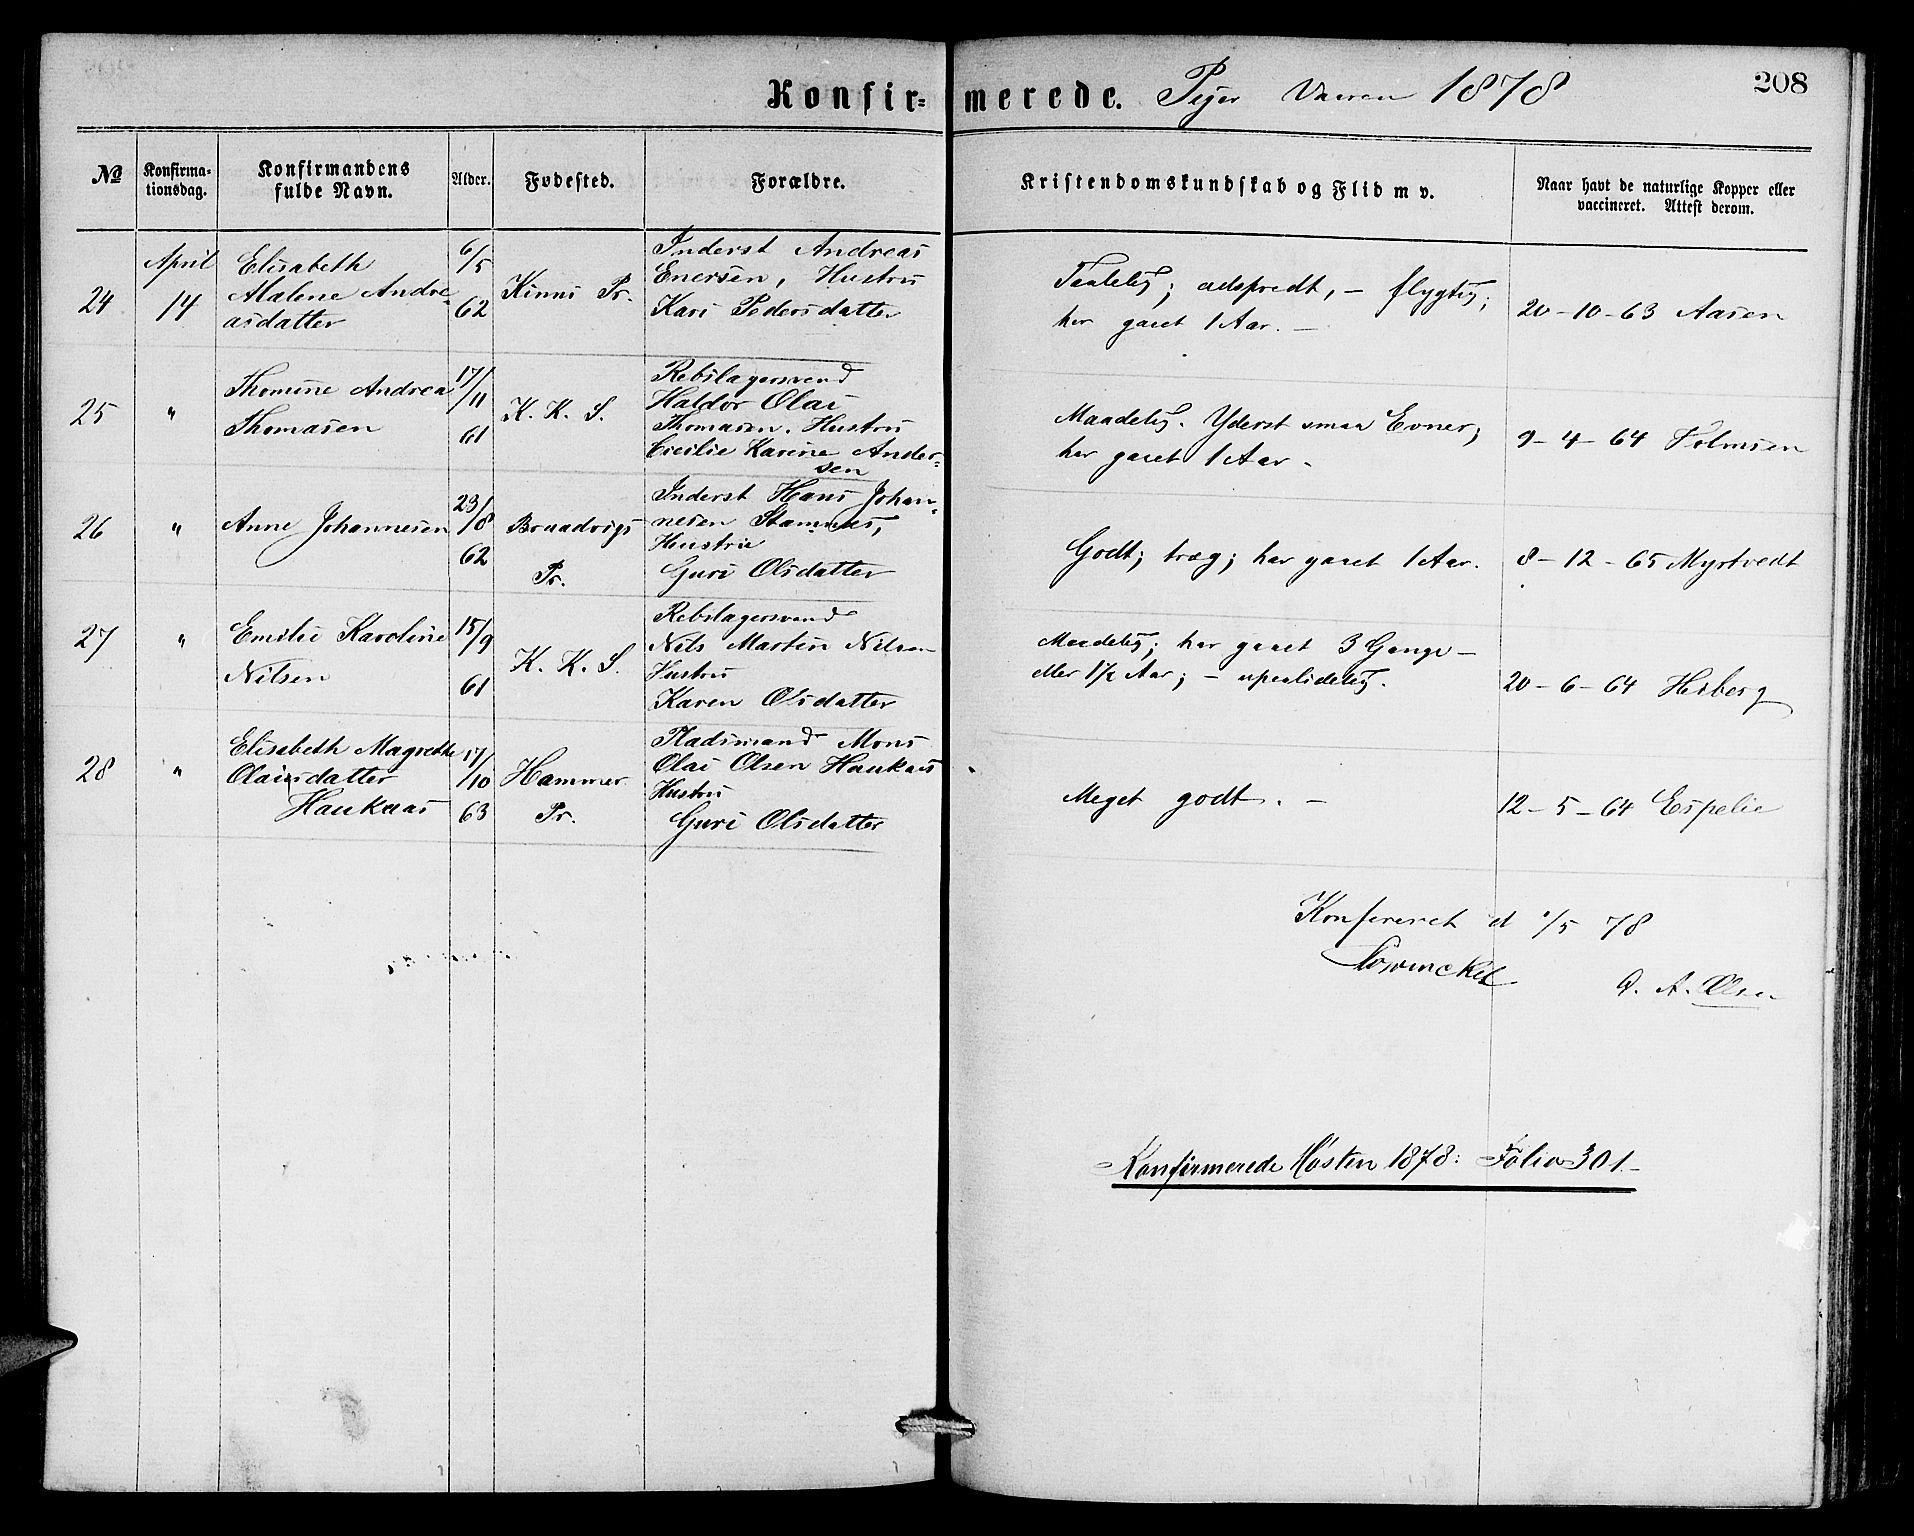 Konfirmerede. Piger Vaaren 1878
208
№
Konfirmationsdag.
Konfirmandens fulde Navn.
Alder.
Fødested.
Forældre.
Kristendomskundskab og Flid m v.
Naar havt de naturlige Kopper eller vaccineret. Attest derom.
24
April
14
Elisabeth
Malene Andre-
asdatter
6/5
62
Kinns Pr.
Inderst Andreas
Enersen, Hustru
Kari Pedersdatter
Taalelig; adspredt, – flygtig;
har gaaet 1 Aar. –
20–10–63 Aasen
25
"
Thomine Andrea
Thomasen
17/11
61
K. K. S.
Rebslagersvend
Haldor Olai
Thomasen, Hustru
Cecilie Karine Ander-
sen
Maadelig. Yderst smaa Evner;
har gaaet 1 Aar.
9–4–64 Holmsen
26
"
Anne Johannesen
23/8
62
Braadvigs
Pr.
Inderst Hans Johan-
nesen Stamnes,
Hustru
Guri Olsdatter
Godt; træg; har gaaet 1 Aar.
8–12–65 Myrtvedt
27
"
Emilie Karoline
Nilsen
15/9
61
K. K. S.
Rebslagersvend
Nils Martin Nilsen
Hustru
Karen Olsdatter
Maadelig; har gaaet 3 Gange –
eller 1½ Aar; – upaalidelig.
20–6–64 Hiberg
28
"
Elisabeth Magrethe
Olaisdatter
Haukaas
17/10
63
Hammer
Pr.
Pladsmand Mons
Olai Olsen Haukaas
Hustru
Guri Olsdatter
Meget godt. –
12–5–64 Espelie
Konfereret d 1/5 78
O. A. Olsen
Konfirmerede Høsten 1878: Folio 301.–